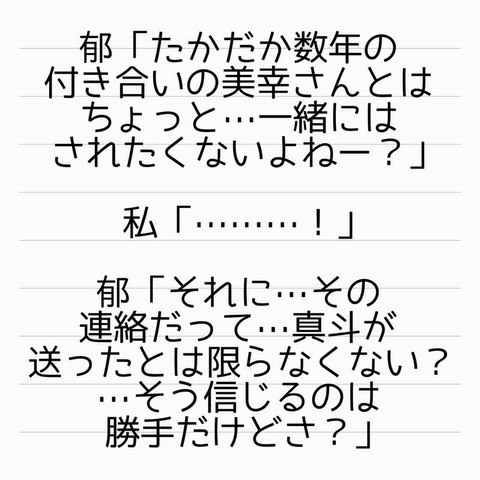 郁「たかだか数年の
付き合いの美幸さんとは
ちょっと…一緒には
されたくないよねー？」
私「………！」
郁「それに…その
連絡だって…真斗が
送ったとは限らなくない？
…そう信じるのは
勝手だけどさ？」